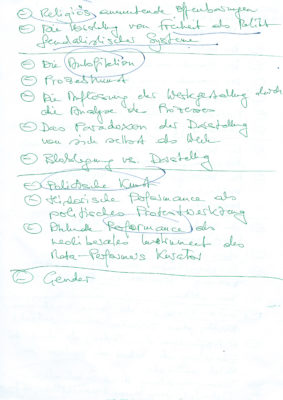 Religiös anmutende Offenbarungen
Die von Freiheit als
feudalistischer Systeme
Die Autofiktion
Prozesskunst
Die Auflösung der Werkgestaltung durch
die Analyse des Prozesses
Das Paradoxon der Darstellung
von sich selbst als Werk
vs. Darstellung
Politische Kunst
Performance als
politisches Protestwerkzeug
Performance als
neoliberales Instrument des
Meta-Performers Kurator
Gender